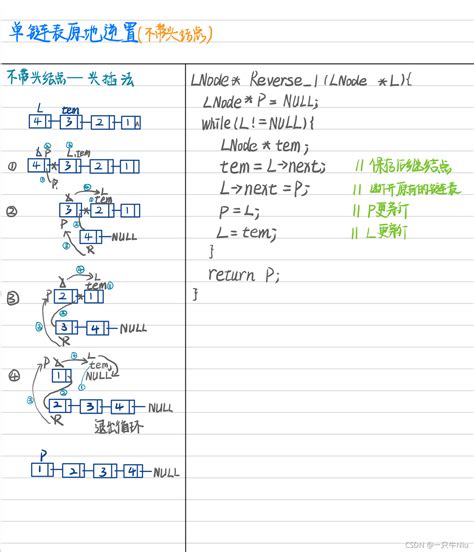 单链表原地逆置(不带头结点)
不带头结点——头插法
L tem
4 3 2 1
① P L tem
4 3 2 1
P
② L
P tem
3 2 1
4 NULL
R
③ L
P tem
2 1
3 4 NULL
R
④ P L
tem
1 NULL
2 3 4 NULL
R 退出循环
P
1 2 3 4 NULL
LNode* Reverse_1(LNode *L){
LNode* P = NULL;
while(L!=NULL){
LNode* tem;
tem = L->next; //保存后继结点
L->next = P; //断开原有的链表
P = L; //P更新
L = tem; //L更新
}
return P;
}
CSDN @一只牛Niu